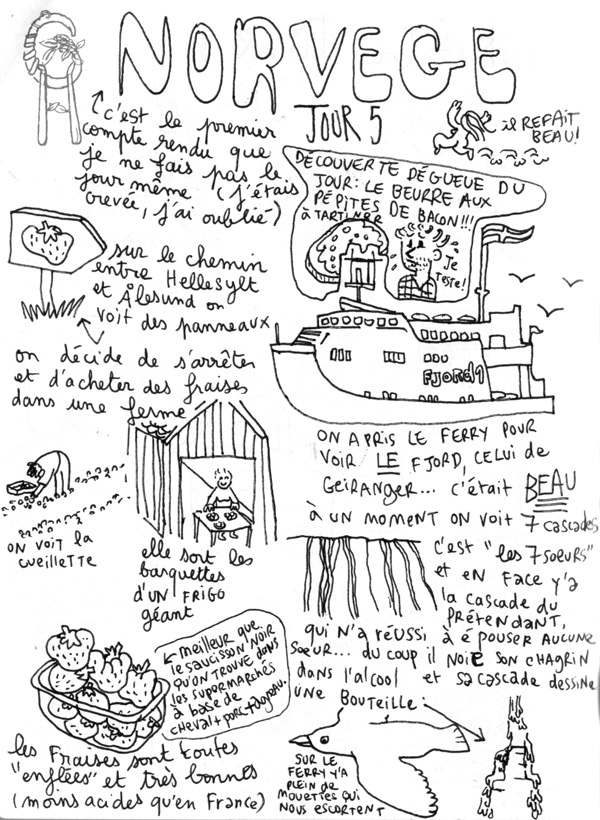 NORVEGE
JOUR 5
c'est le premier
compte rendu que
je ne fais pas le
jour même (j'étais
crevée, j'ai oublié)
il REFAIT
BEAU!
DÉCOUVERTE DÉGUEUE DU
JOUR: LE BEURRE AUX
PÉPITES DE BACON!!!
à TARTINER
Je
teste!
sur le chemin
entre Hellesylt
et Ålesund on
voit des panneaux
on décide de s'arrêter
et d'acheter des fraises
dans une ferme
FJORD1
ON A PRIS LE FERRY POUR
VOIR LE FJORD, CELUI de
GEIRANGER... c'était BEAU
à UN MOMENT ON VOIT 7 cascades
c'est "les 7 soeurs"
et EN FACE y'a
la cascade du
PRÉTENDANT,
qui N'a RÉUSSI à épOUSER AUCUNE
SOEUR... du coup il NOIE SON CHAGRIN
dans l'alcool et sa cascade dessine
UNE BOUTEILLE:
ON VOIT la
cueillette
elle sort les
barquettes
d'UN FRIGO
géant
meilleur que
le saucisson NOIR
qu'on TROUVE dans
les supermarchés
à base de
cheval + porc + agneau.
les FRAISES sont toutes
"enflées" et très bonnes
(moins acides qu'en France)
SUR LE
FERRY Y'A
PLEIN DE
MOUETTES QUI
NOUS ESCORTENT